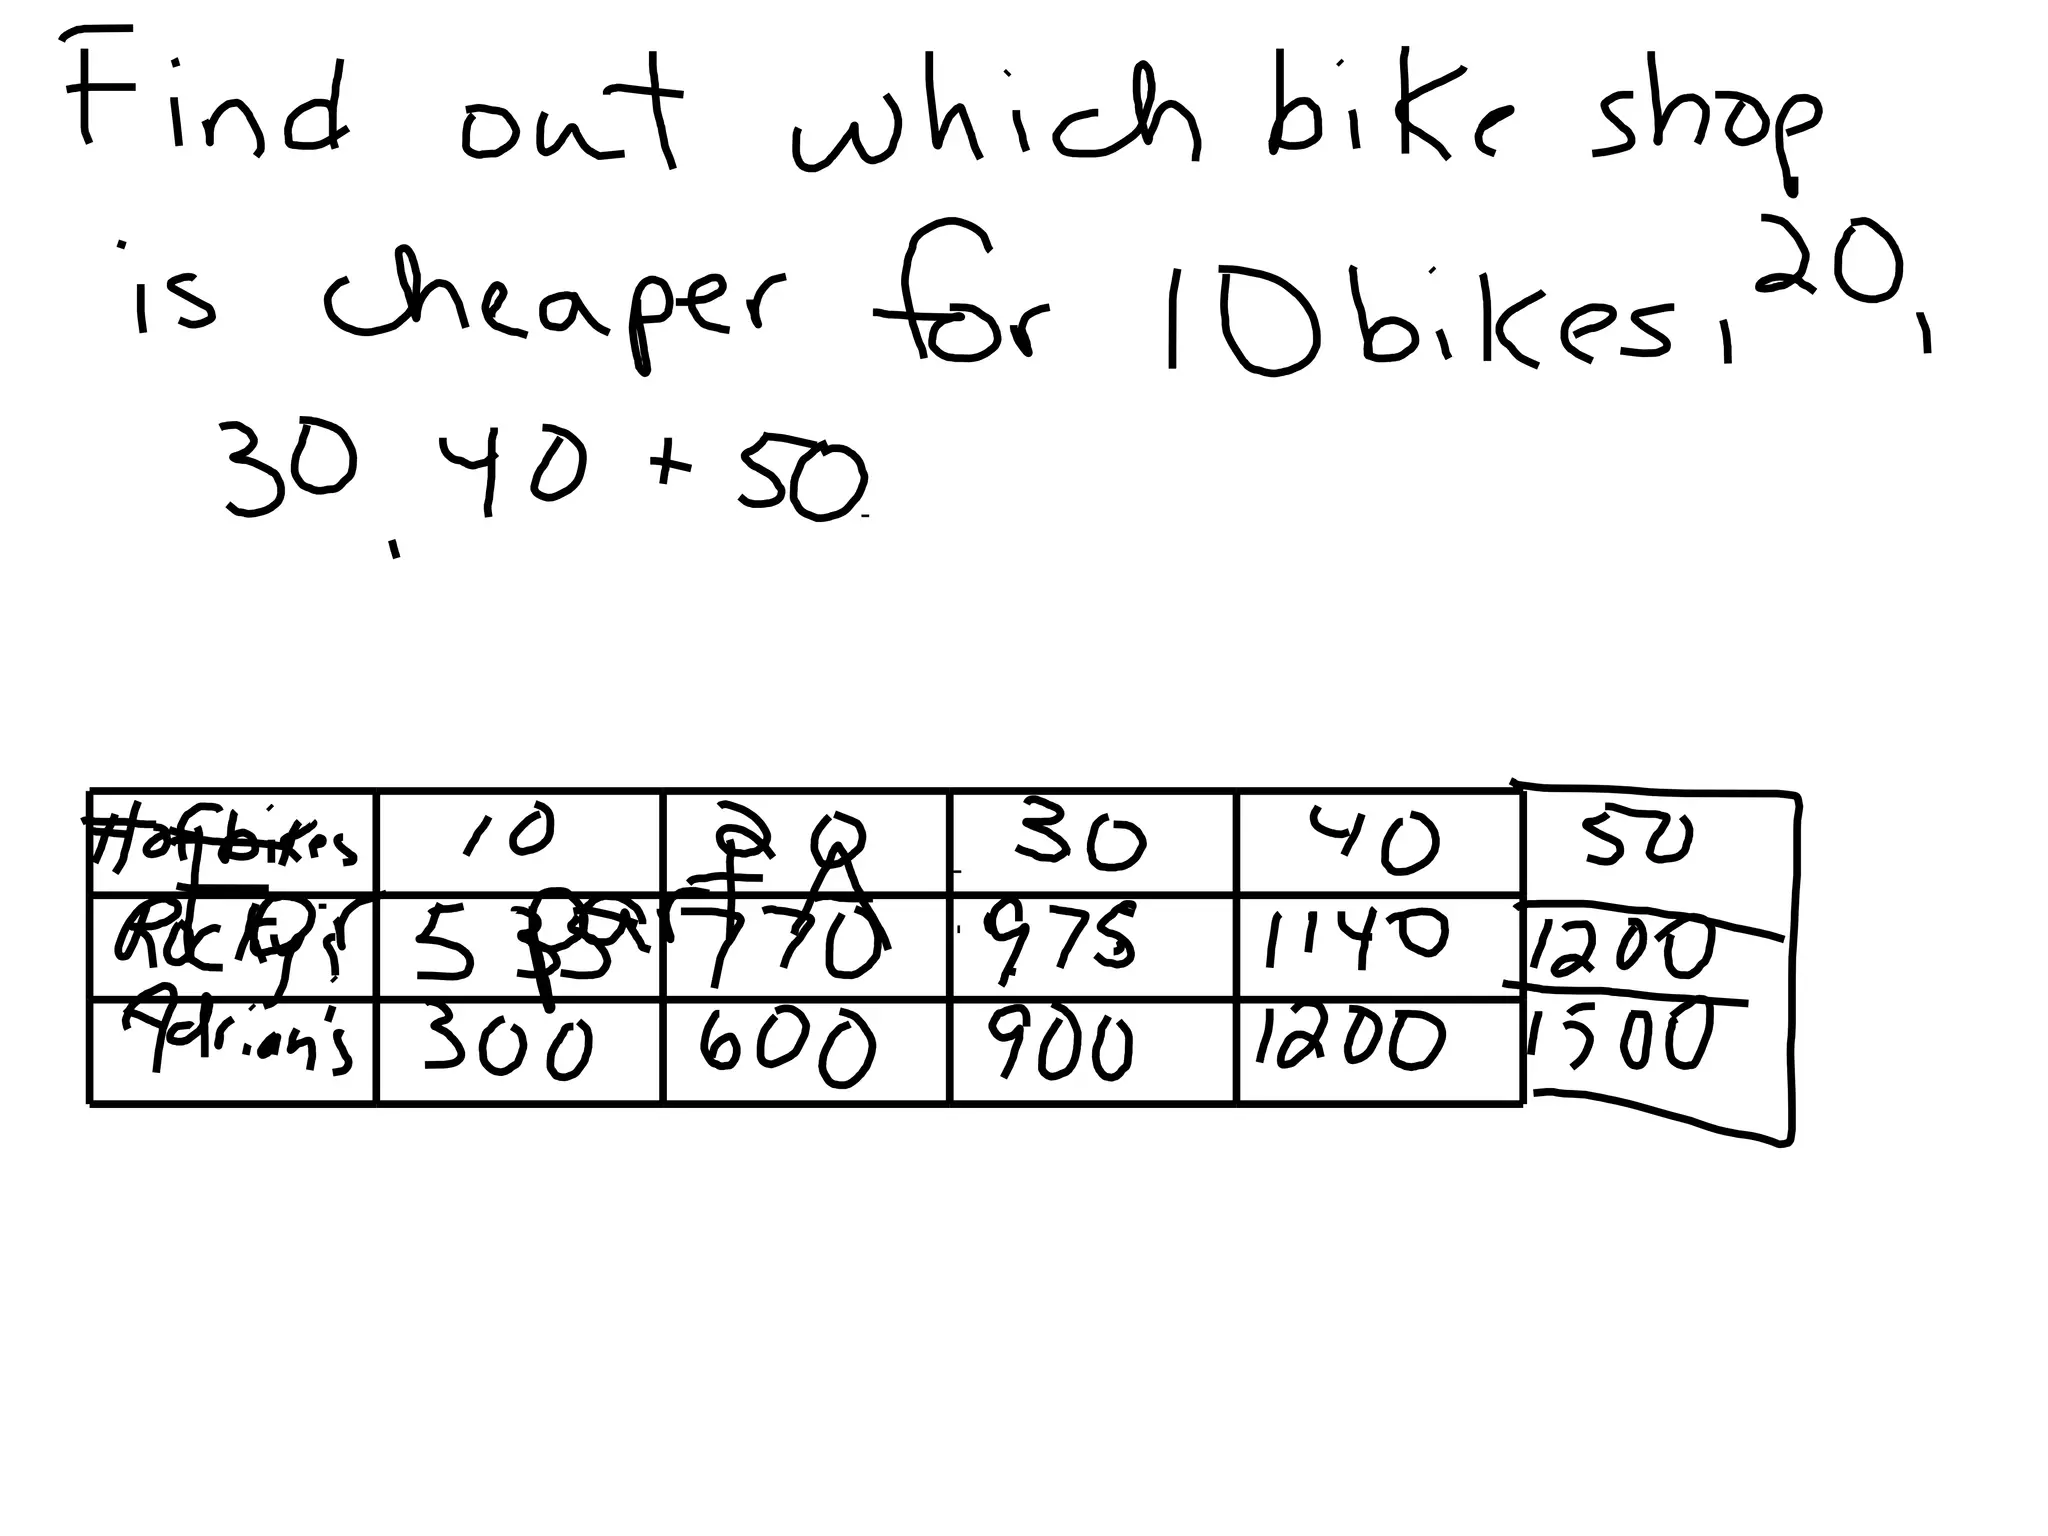 Find out which bike shop
is cheaper for 10 bikes, 20,
30, 40 + 50.
# of bikes 10 20 30 40 50
Rocky's 770 975 1140 1200
Adrian's 300 600 900 1200 1500